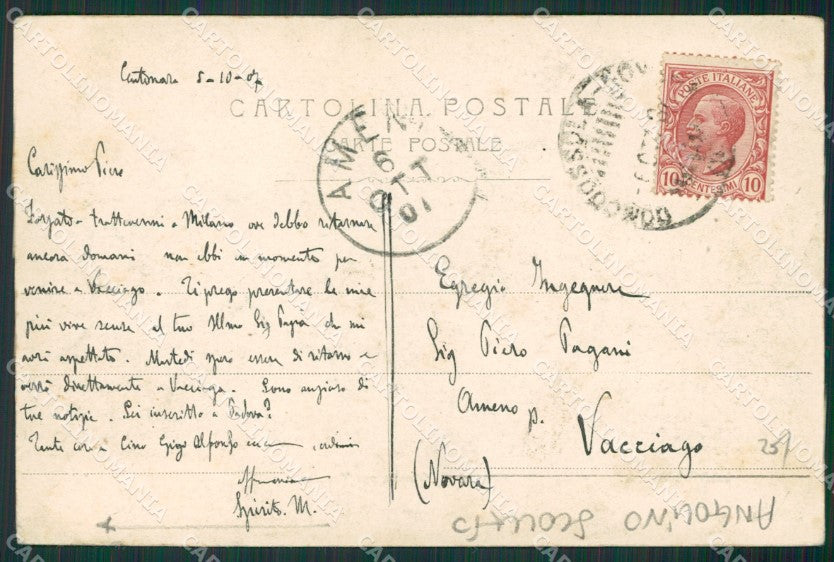 5-10-07
CARTOLINA POSTALE
CARTE POSTALE
AMENO
6 OTT 07
DOMODOSSOLA-NOV
POSTE ITALIANE
10 CENTESIMI 10
Carissimo Piero
Forzato a trattenermi a Milano ove debbo ritornare
ancora domani non ebbi un momento per
venire a Vacciago. Ti prego presentare le mie
più vive scuse al tuo Illmo Sig Papà che mi
avrà aspettato. Martedì spero essere di ritorno e
verrò direttamente a Vacciago. Sono ansioso di
tue notizie. Sei inscritto a Padova?
Tante cose a Cino Gigi Alfonso
M.
Egregio Ingegnere
Sig Piero Pagani
Ameno p.
Vacciago
(Novara)
25/
ANGOLINO SCOLLATO
CARTOLINOMANIA